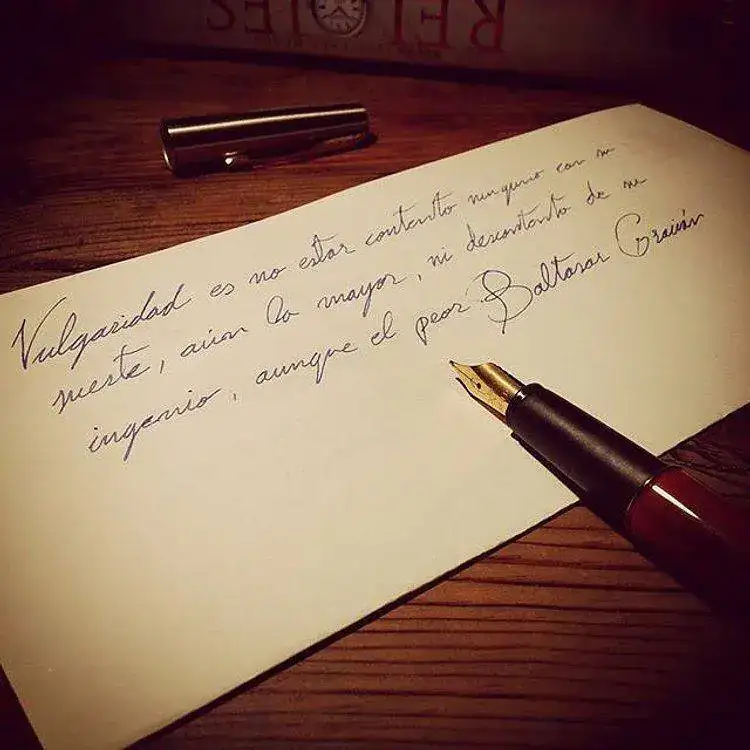 RELOJES
Vulgaridad es no estar contento ninguno con su
suerte, aún la mayor, ni descontento de su
ingenio, aunque el peor. Baltasar Gracián